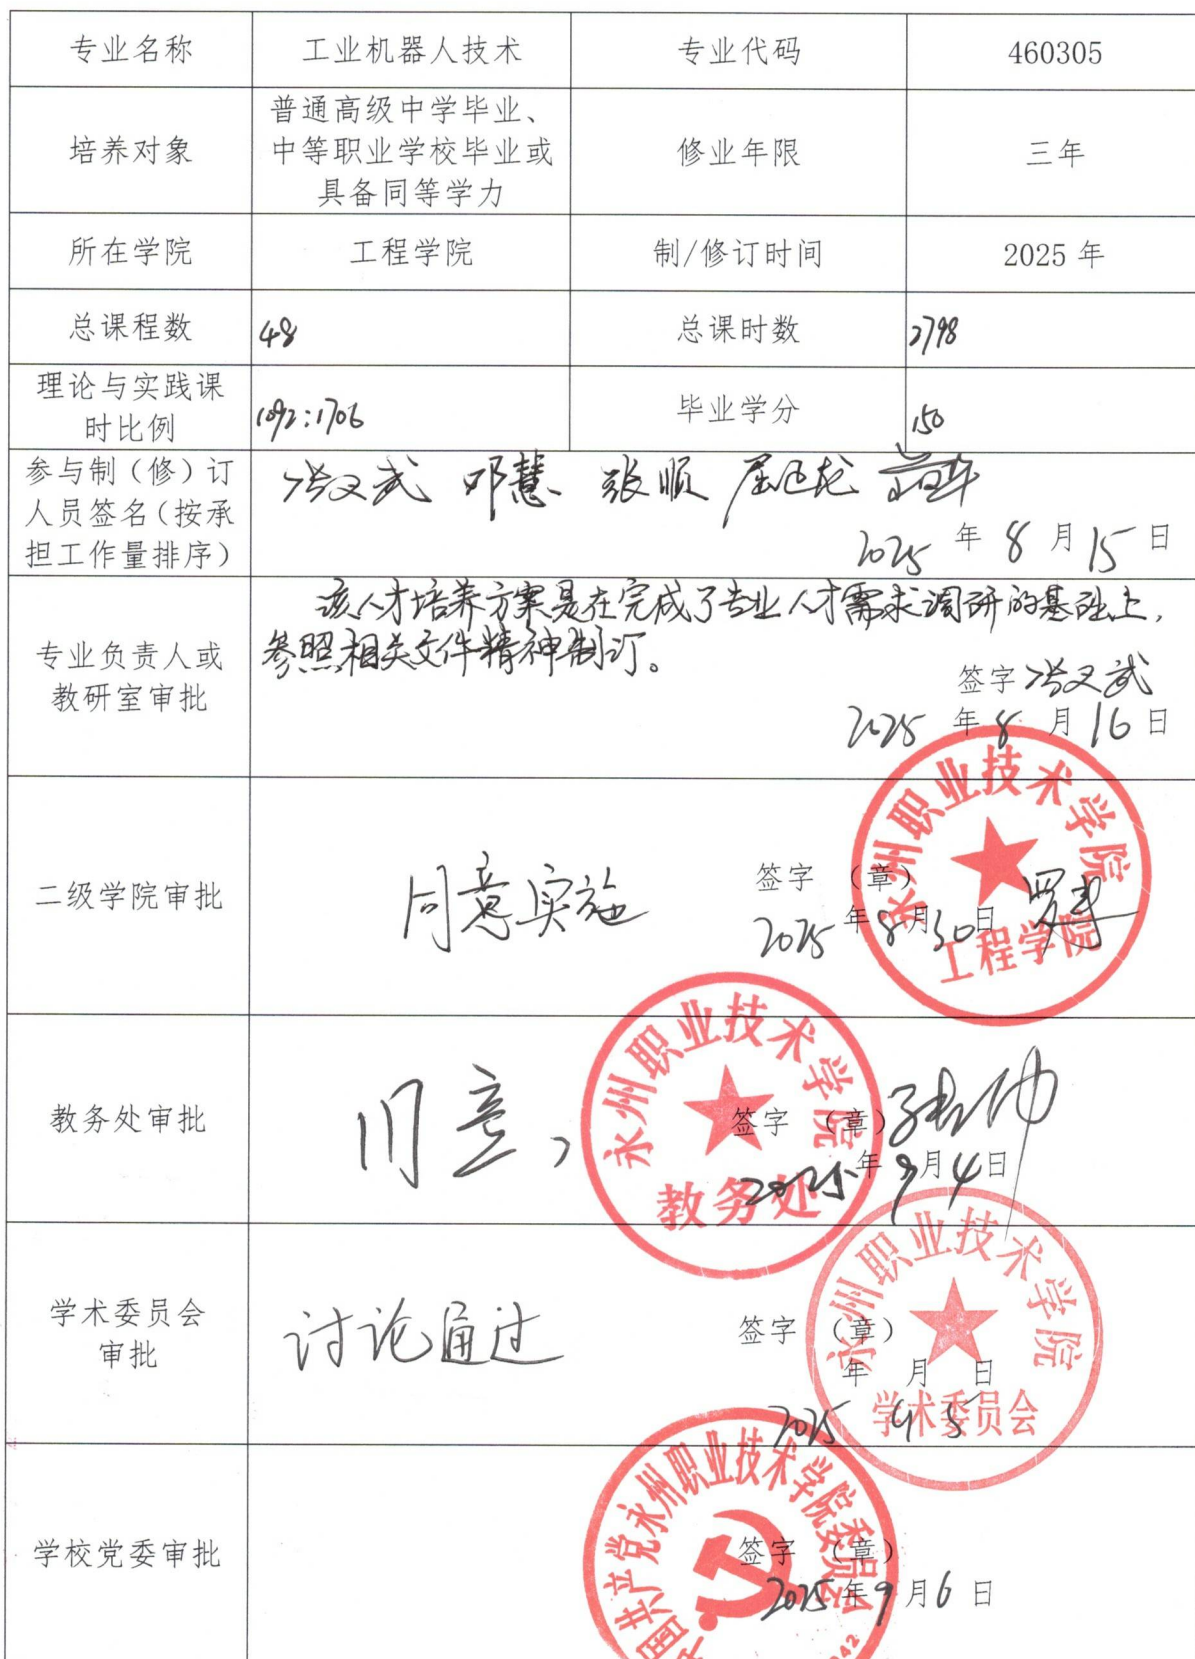 专业名称 工业机器人技术 专业代码 460305
培养对象 普通高级中学毕业、
中等职业学校毕业或
具备同等学力 修业年限 三年
所在学院 工程学院 制/修订时间 2025 年
总课程数 48 总课时数 2798
理论与实践课
时比例 1092:1706 毕业学分 150
参与制（修）订
人员签名（按承
担工作量排序）
邓慧 张顺
2025 年 8 月 15 日
专业负责人或
教研室审批
该人才培养方案是在完成了专业人才需求调研的基础上，
参照相关文件精神制订。
签字
2025 年 8 月 16 日
二级学院审批
同意实施
签字 （章）
2025 年 8 月 30 日
永州职业技术学院
工程学院
教务处审批
同意，
签字 （章）
2025 年 9 月 4 日
永州职业技术学院
教务处
学术委员会
审批
讨论通过
签字 （章）
年 月 日
2025 9 5
永州职业技术学院
学术委员会
学校党委审批
签字 （章）
2025 年 9 月 6 日
中国共产党永州职业技术学院委员会